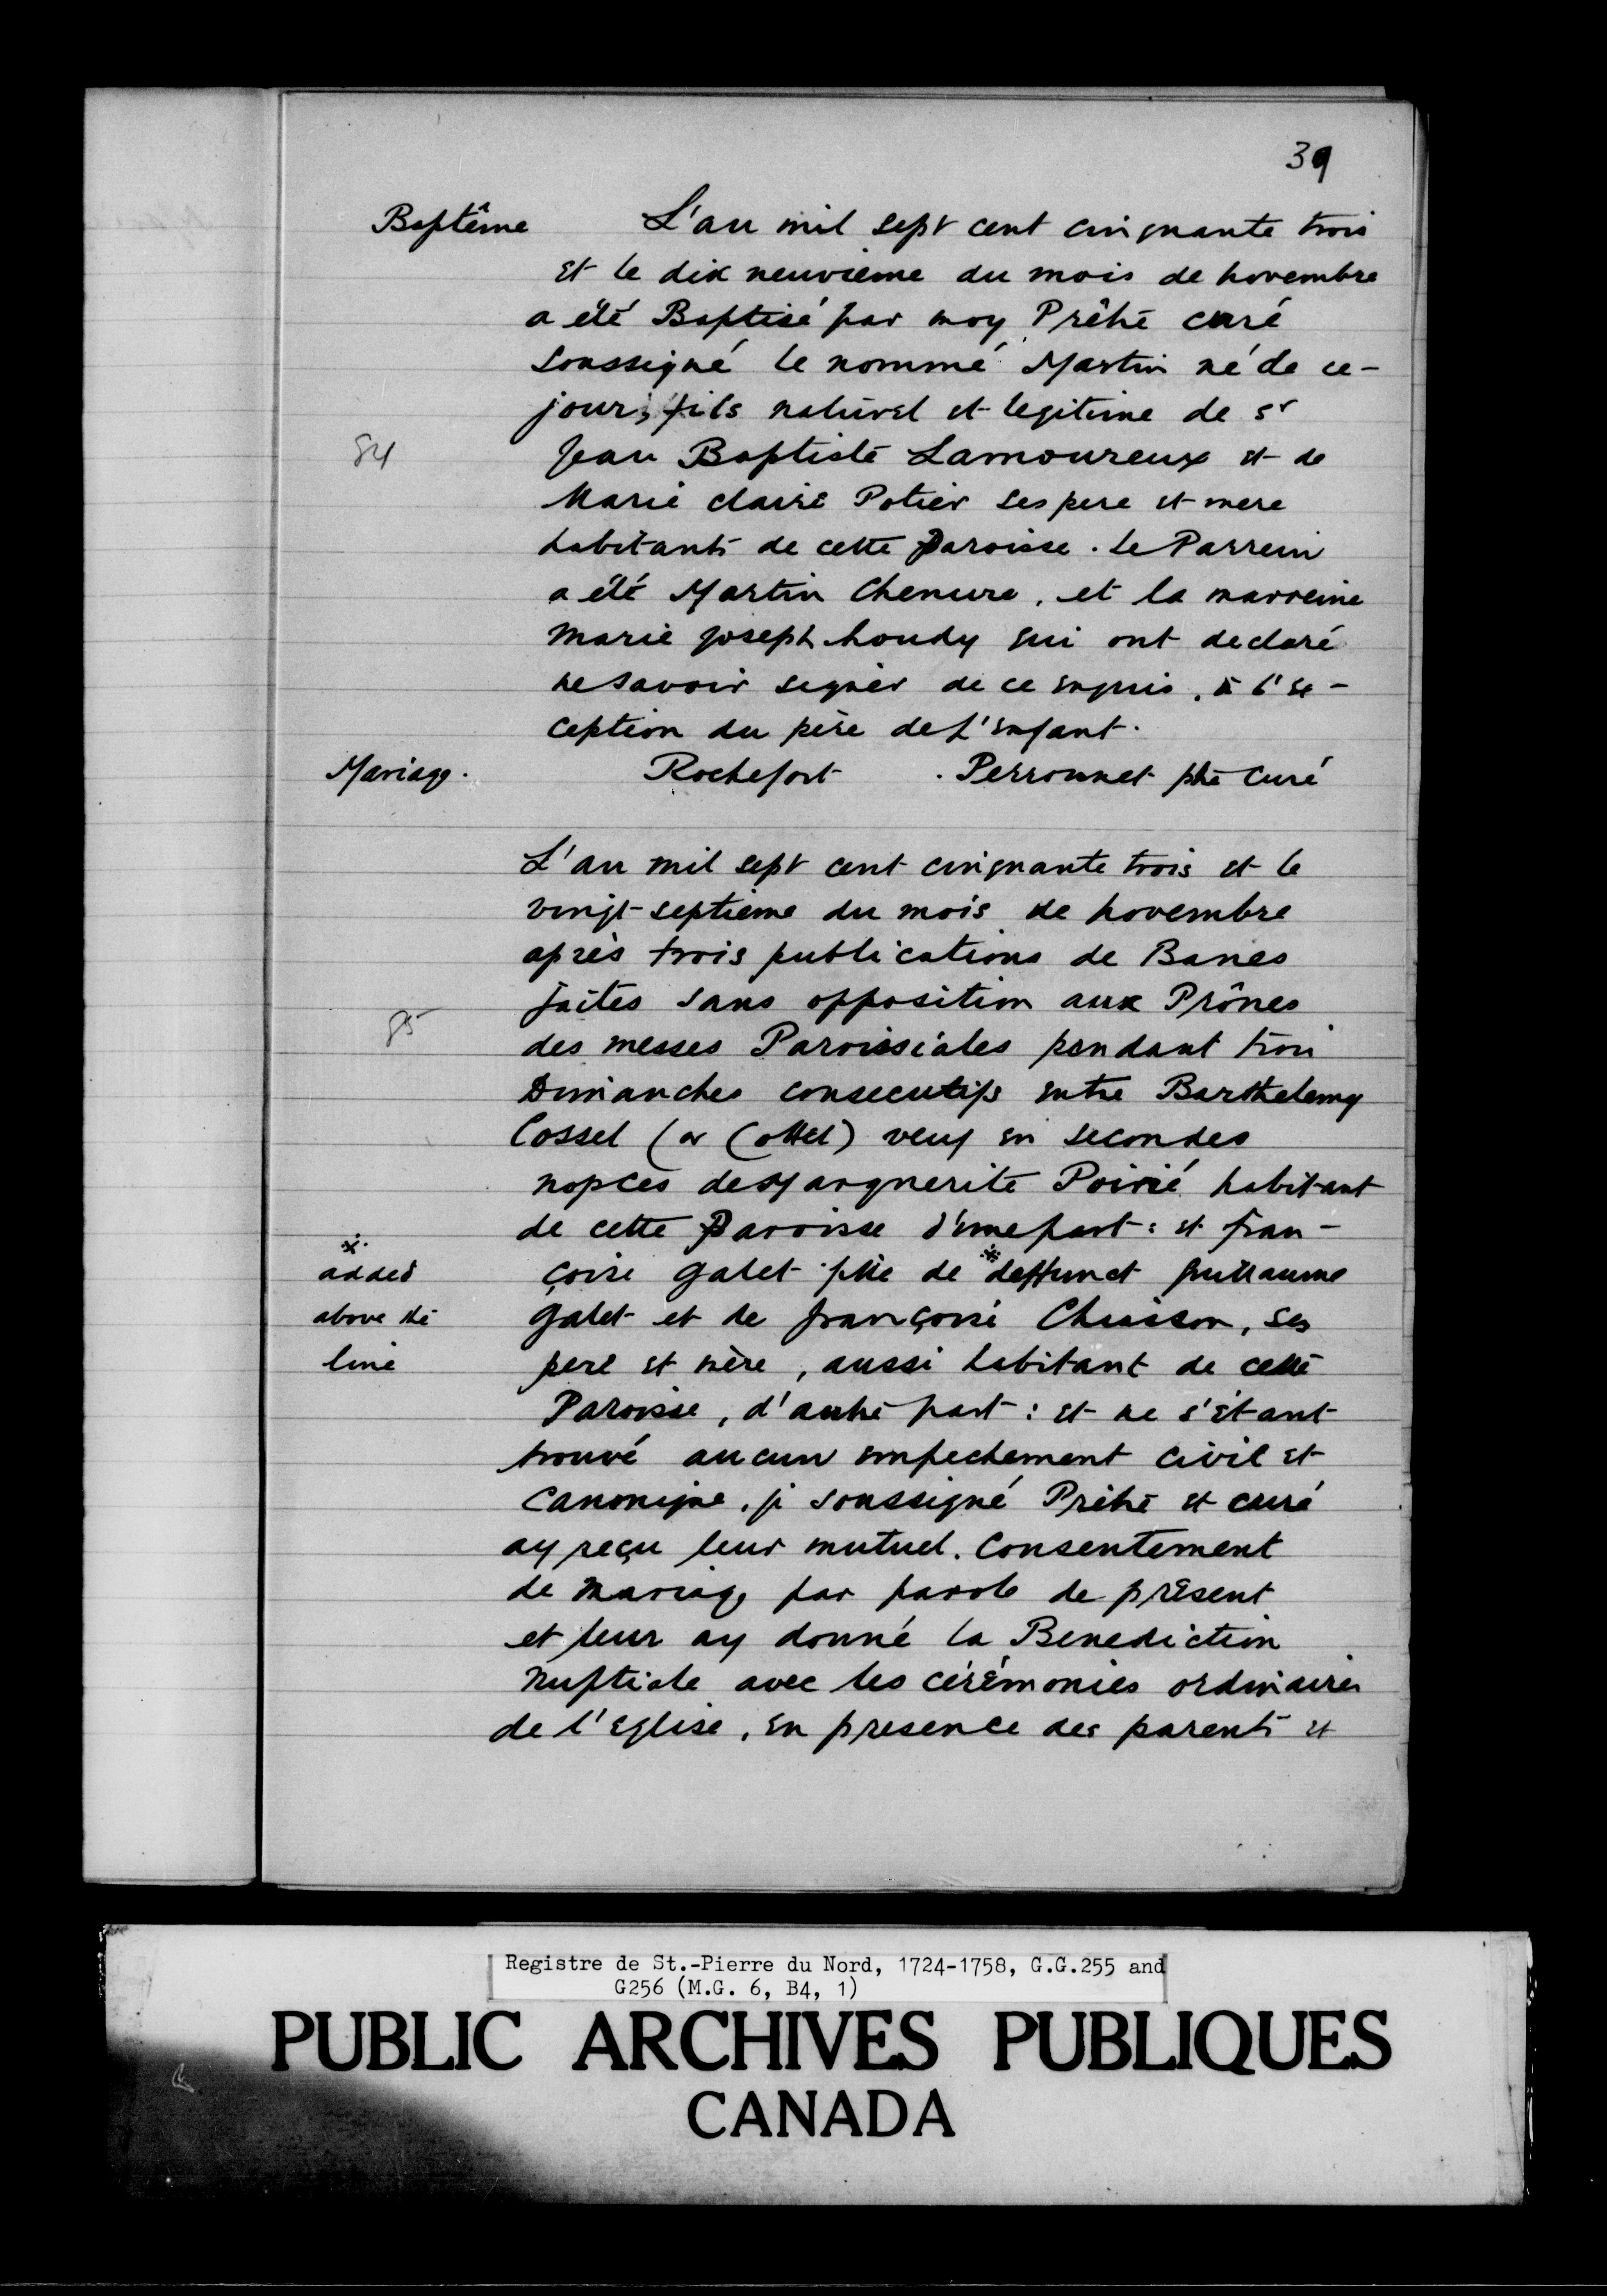 39
Baptême L'an mil sept cent cinquante trois
et le dix neuvieme du mois de novembre
a été Baptisé par moy Prêtre curé
soussigné le nommé Martin né de ce-
jour, fils naturel et legitime de sr
84 Jean Baptiste Lamoureux et de
Marie claire Potier ses pere et mere
habitants de cette Paroisse. Le Parrein
a été Martin Chenure, et la marreine
marie joseph houdy qui ont declaré
ne savoir signer de ce enquis, à l'ex-
ception du père de L'enfant.
Mariage. Rochefort . Perronnet ptre curé
L'an mil sept cent cinquante trois et le
vingt-septieme du mois de novembre
après trois publications de Banes
faites sans opposition aux Prônes
85 des messes Paroissiales pendant trois
Dimanches consecutifs entre Barthelemy
Cossel (or Cottel) veuf en secondes
nopces de Marguerite Poirié habitant
de cette Parroisse d'une part: et fran-
çoise galet fille de * deffunct guillaume
* added above the line
galet et de françoise Chiasson, ses
pere et mère, aussi habitant de cette
Paroisse, d'autre part: et ne s'étant
trouvé aucun empechement civil et
canonique, je soussigné Prêtre et curé
ay reçu leur mutuel. consentement
de mariage par parole de présent
et leur ay donné la Benediction
nuptiale avec les cérémonies ordinaires
de l'Eglise, en presence des parents et
Registre de St.-Pierre du Nord, 1724-1758, G.G.255 and
G256 (M.G. 6, B4, 1)
PUBLIC ARCHIVES PUBLIQUES
CANADA